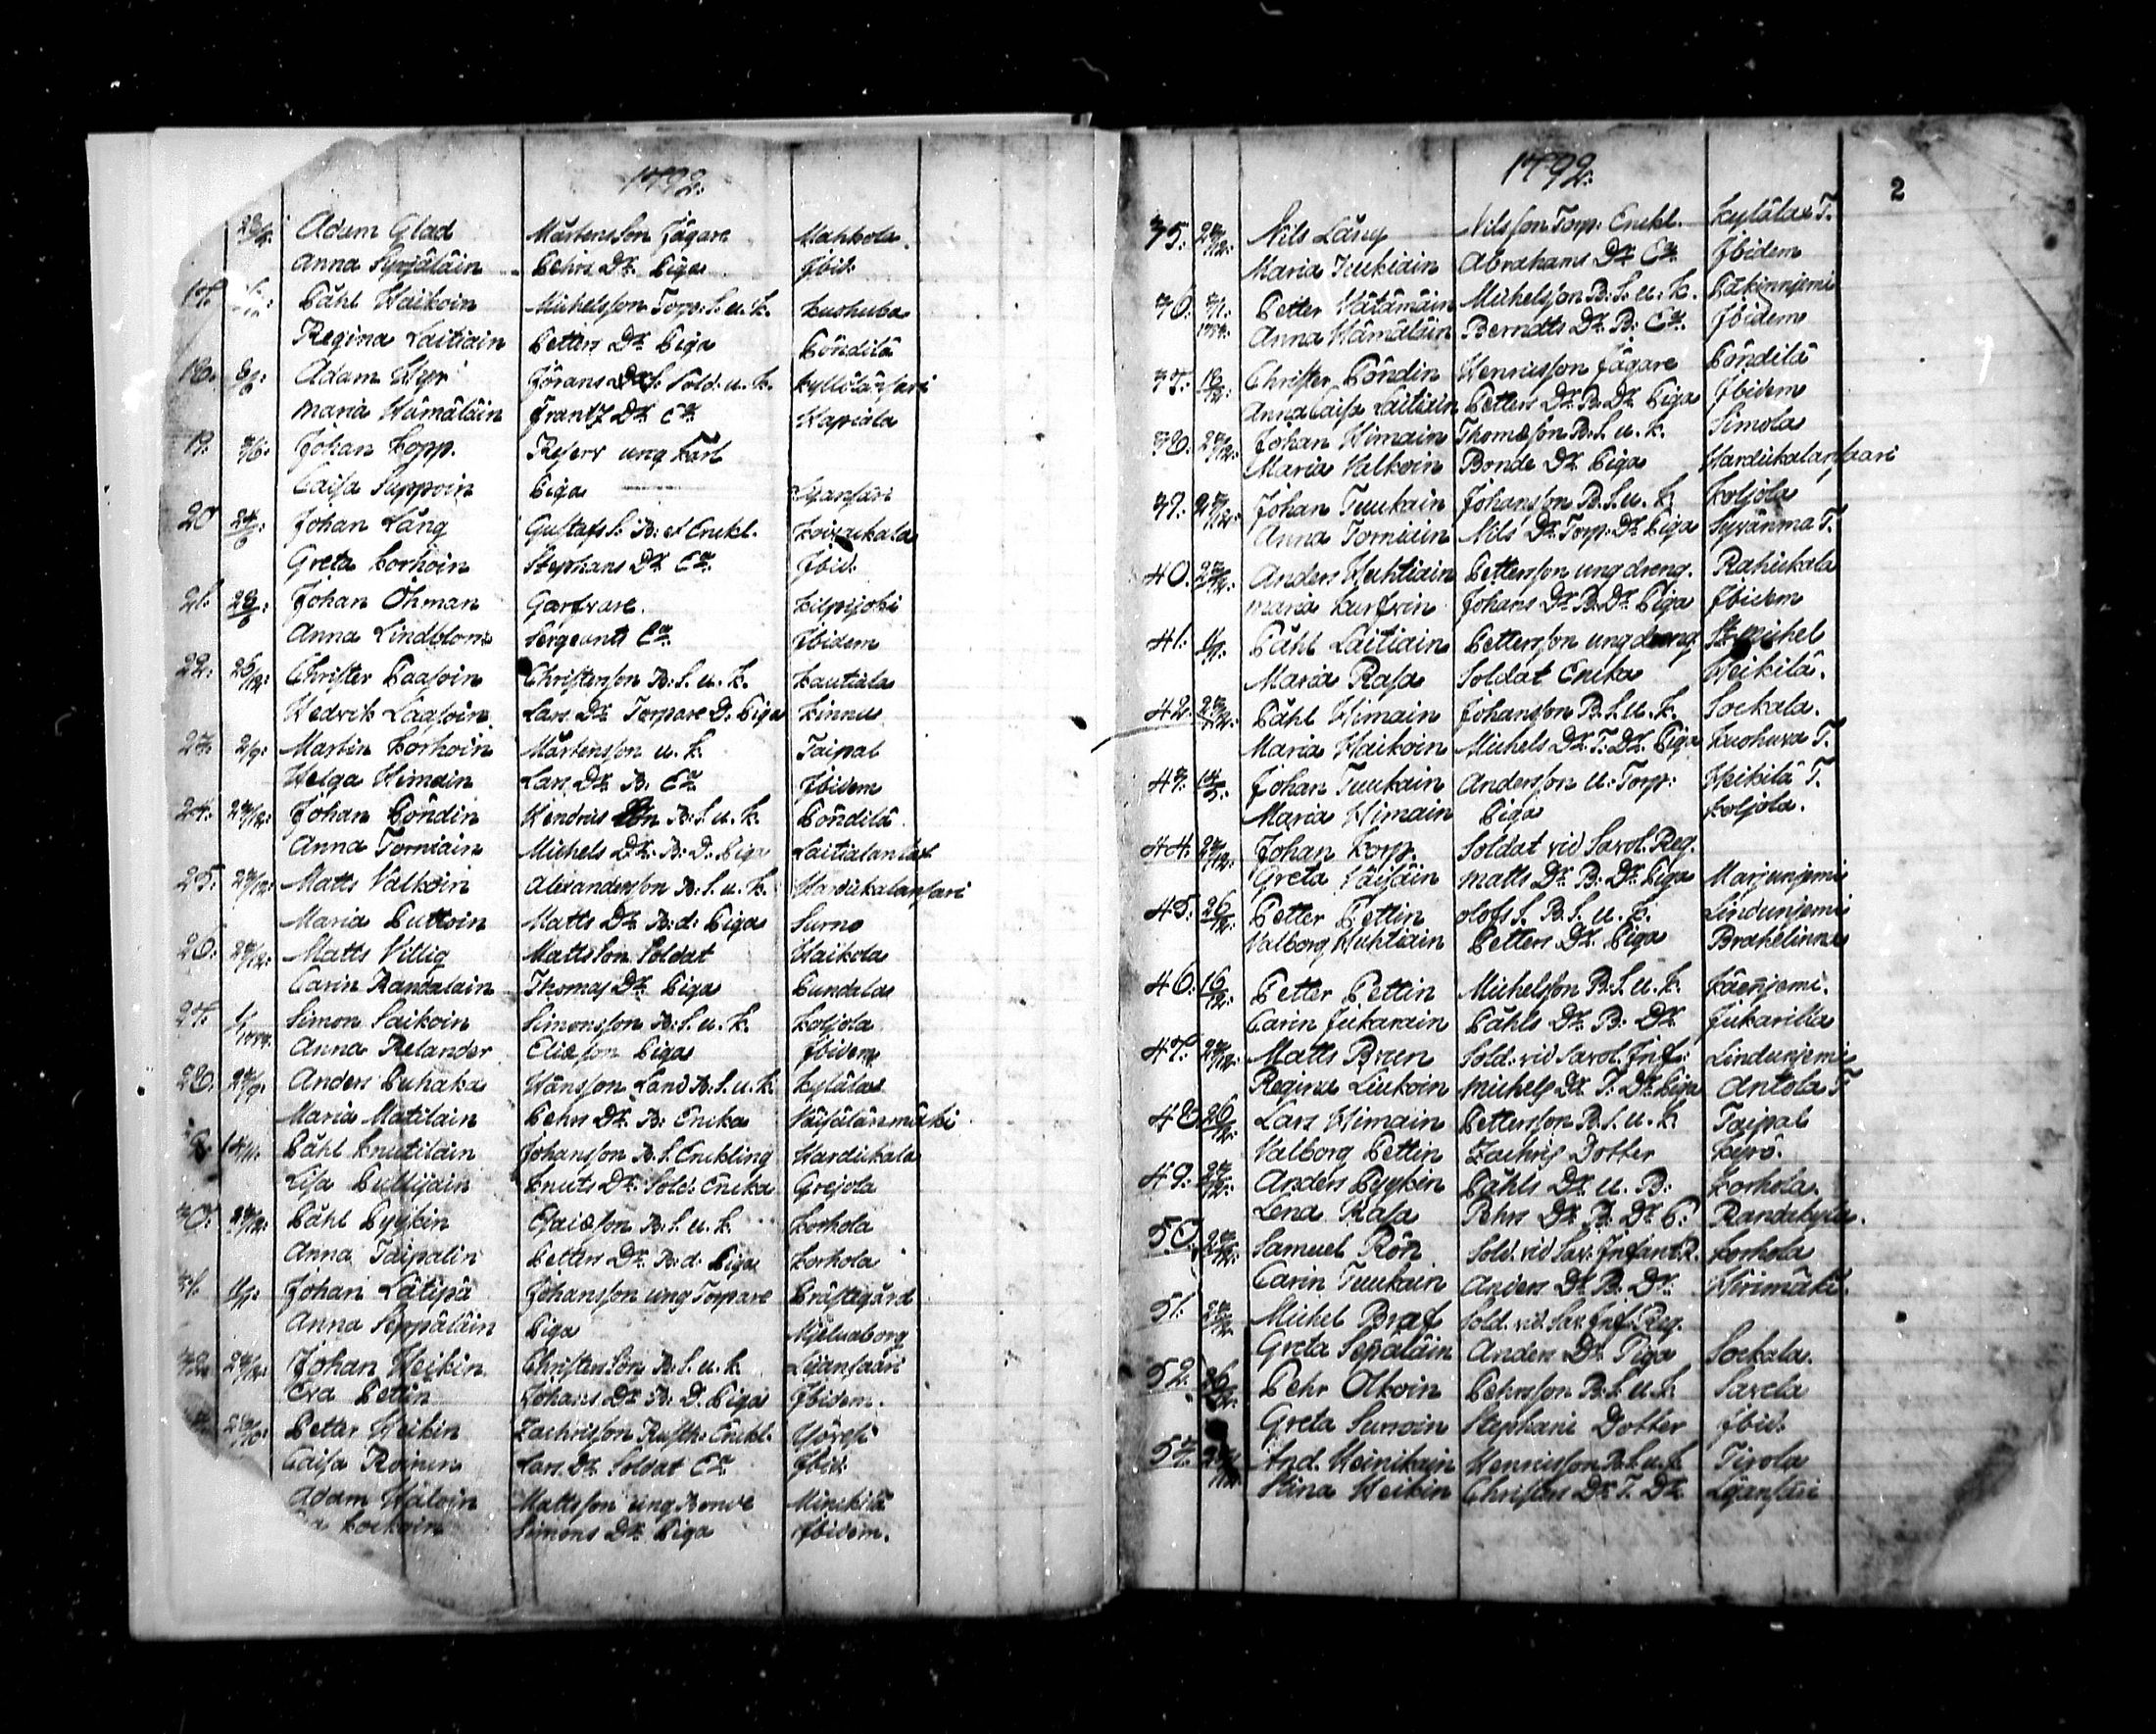 1792:
23/9: Adam Glad Mårtensson Jägare Mahkola.
Anna Syrjäläin Pehrs Dr. Piga Jbid.
17. Påhl Haikoin Michelsson Torp: S. u. K. Kuohuba
Regina Laitiain Petters Dr. Piga Pöndilä
18. Adam Hyr Jörans S. Sold: u. K. Kyllölänsari
Maria Hämäläin Frantz Dr. Ea. Kapiala
19. Johan Kopp. Reserv ung Karl
Caisa Suppoin Piga Lijansari
20 24/6: Johan Lång Gustafs S. B: et Enckl. Koiraikala
Greta Korhoin Stephans Dr. Ea. Jbid:
21. 23/6: Johan Öhman Garfvare. Kilpijoki
Anna Lindblom Sergeants Ea. Jbidem
22. 26/12: Christer Paasoin Christersson B: S. u. K. Kautiala
Hedvik Laasoin Lars Dr. Torpare D. Piga Kinnu
23. 2/9: Martin Korhoin Mårtensson u. K. Taipal
Helga Himain Lars Dr. B. Ea. Jbidem
24. 23/12: Johan Pöndin Hendrics Son B: S. u. K. Pöndilä
Anna Torniain Michels Dr. B: D. Piga Laitialanlax
25. 23/12: Matts Valkoin Alexandersson B. S. u. K. Hardickalansari
Maria Puttoin Matts Dr. B: d: Piga Surno
26. 23/12: Matts Villig Mattsson Soldat Haikola
Carin Randalain Thomas Dr. Piga Pundala
27. 1/1 1793. Simon Saikoin Simonsson B: S. u. K. Koljola
Anna Relander Eliæson Piga Jbidem
28. 23/9: Anders Puhaka Hansson Land B. S. u. K. Kylälax
Maria Matilain Pehrs Dr. B: Enka Väisälänmäki
14/11: Påhl Knutilain Johansson B. S. Enckling Hardickala
Lisa Pullijain Knuts Dr. Sold: Encka Grejola
30. 23/12: Påhl Pyykin Esaiæson B: S. u. K. Korhola
Anna Taipalin Petters Dr. B: d: Piga Korhola
31. 11/11: Johan Lätipä Johansson ung Torpare Prästegård
Anna Seppäläin Piga Njeluaborg
32. 23/12: Johan Heikin Christersson B. S. u. K. Lijansaari
Eva Pettin Johans Dr. B: D. Piga Jbidem.
Petter Heikin Zachrisson Rusth: Enckl. Yövesi
Caisa Roinin Lars Dr. Soldat Ea. Jbid:
Adam Häloin Mattsson ung Bonde Minikilä
Kockoin Simons Dr. Piga Jbidem.
1792:
2
35: 23/12: Nils Lång Nilsson Torp: Enckl. Kylälax T.
Maria Tuukiain Abrahams Dr. Ea. Jbidem
36: Petter Hätämäin Michelsson B. S. u. K. Päkinnjemi
Anna Hämäläin Berndts Dr. B: Ea. Jbidem
37: 18/12: Christer Pöndin Henricsson Jägare Pöndilä
Anna Caisa Laitiain Petters Dr. B. Dr. Piga Jbidem
38: 23/12: Johan Himain Thomæson B. S. u. K. Simola
Maria Valkoin Bonde Dr. Piga Hardickalansaari
39: 23/12: Johan Tuukain Johansson B. S. u. K. Koljola
Anna Torniain Nils Dr. Torp: Dr. Piga Syvänma T.
40. Anders Huhtiain Pettersson ung dreng. Rahickala
Maria Kurfvin Johans Dr. B. Dr. Piga Jbidem
41: Påhl Laitiain Pettersson ung dreng St. Michel
Maria Rasa Soldat Encka Heikilä.
42: 23/12: Påhl Himain Johansson B. S. u. K. Sockala.
Maria Haikoin Michels Dr. T: Dr. Piga Kuohuva T.
43. Johan Tuukain Andersson u: Torp: Heikilä T.
Maria Himain Piga Koljola.
44: 23/12: Johan Korp. Soldat vid Savol. Reg.
Greta Väisäin Matts Dr. B: Dr. Piga Marjunjemi
45: 26/12: Petter Pettin Olofs S. B. S. u. K. Lindunjemi
Valborg Huhtiain Petters Dr. Piga Brahelinna
46: 16/12: Petter Pettin Michelsson B. S. u. K. Käenjemi.
Carin Jukarain Påhls Dr. B: Dr. Jukarila
47: 23/12: Matts Brun Sold: vid Savol. Inf: Lindunjemi
Regina Liukoin Michels Dr. T: Dr. Piga Antola T
48 26/12: Lars Himain Pettersson B. S. u. K. Taipal
Valborg Pettin Zachris Dotter Kyrö.
49: Anders Pyykin Påhls Dr. u. B: Korhola.
Lena Rasa Pehrs Dr. B. Dr. P: Randakylä.
50. Samuel Rön Sold. vid Sav. Infant. R. Korhola
Carin Tuukain Anders Dr. B. Dr. Hirimäki.
51. Michel Braf Sold. vid Sav. Inf. Reg.
Greta Sepäläin Anders Dr. Piga Sockala.
52 26/12: Pehr Olkoin Pehrsson B. S. u. K. Savela
Greta Surroin Stephans Dotter Jbid:
53. And. Heinikain Henricsson B. S. u. K. Tirola
Stina Heikin Christers Dr. T. Dr. Lijansari